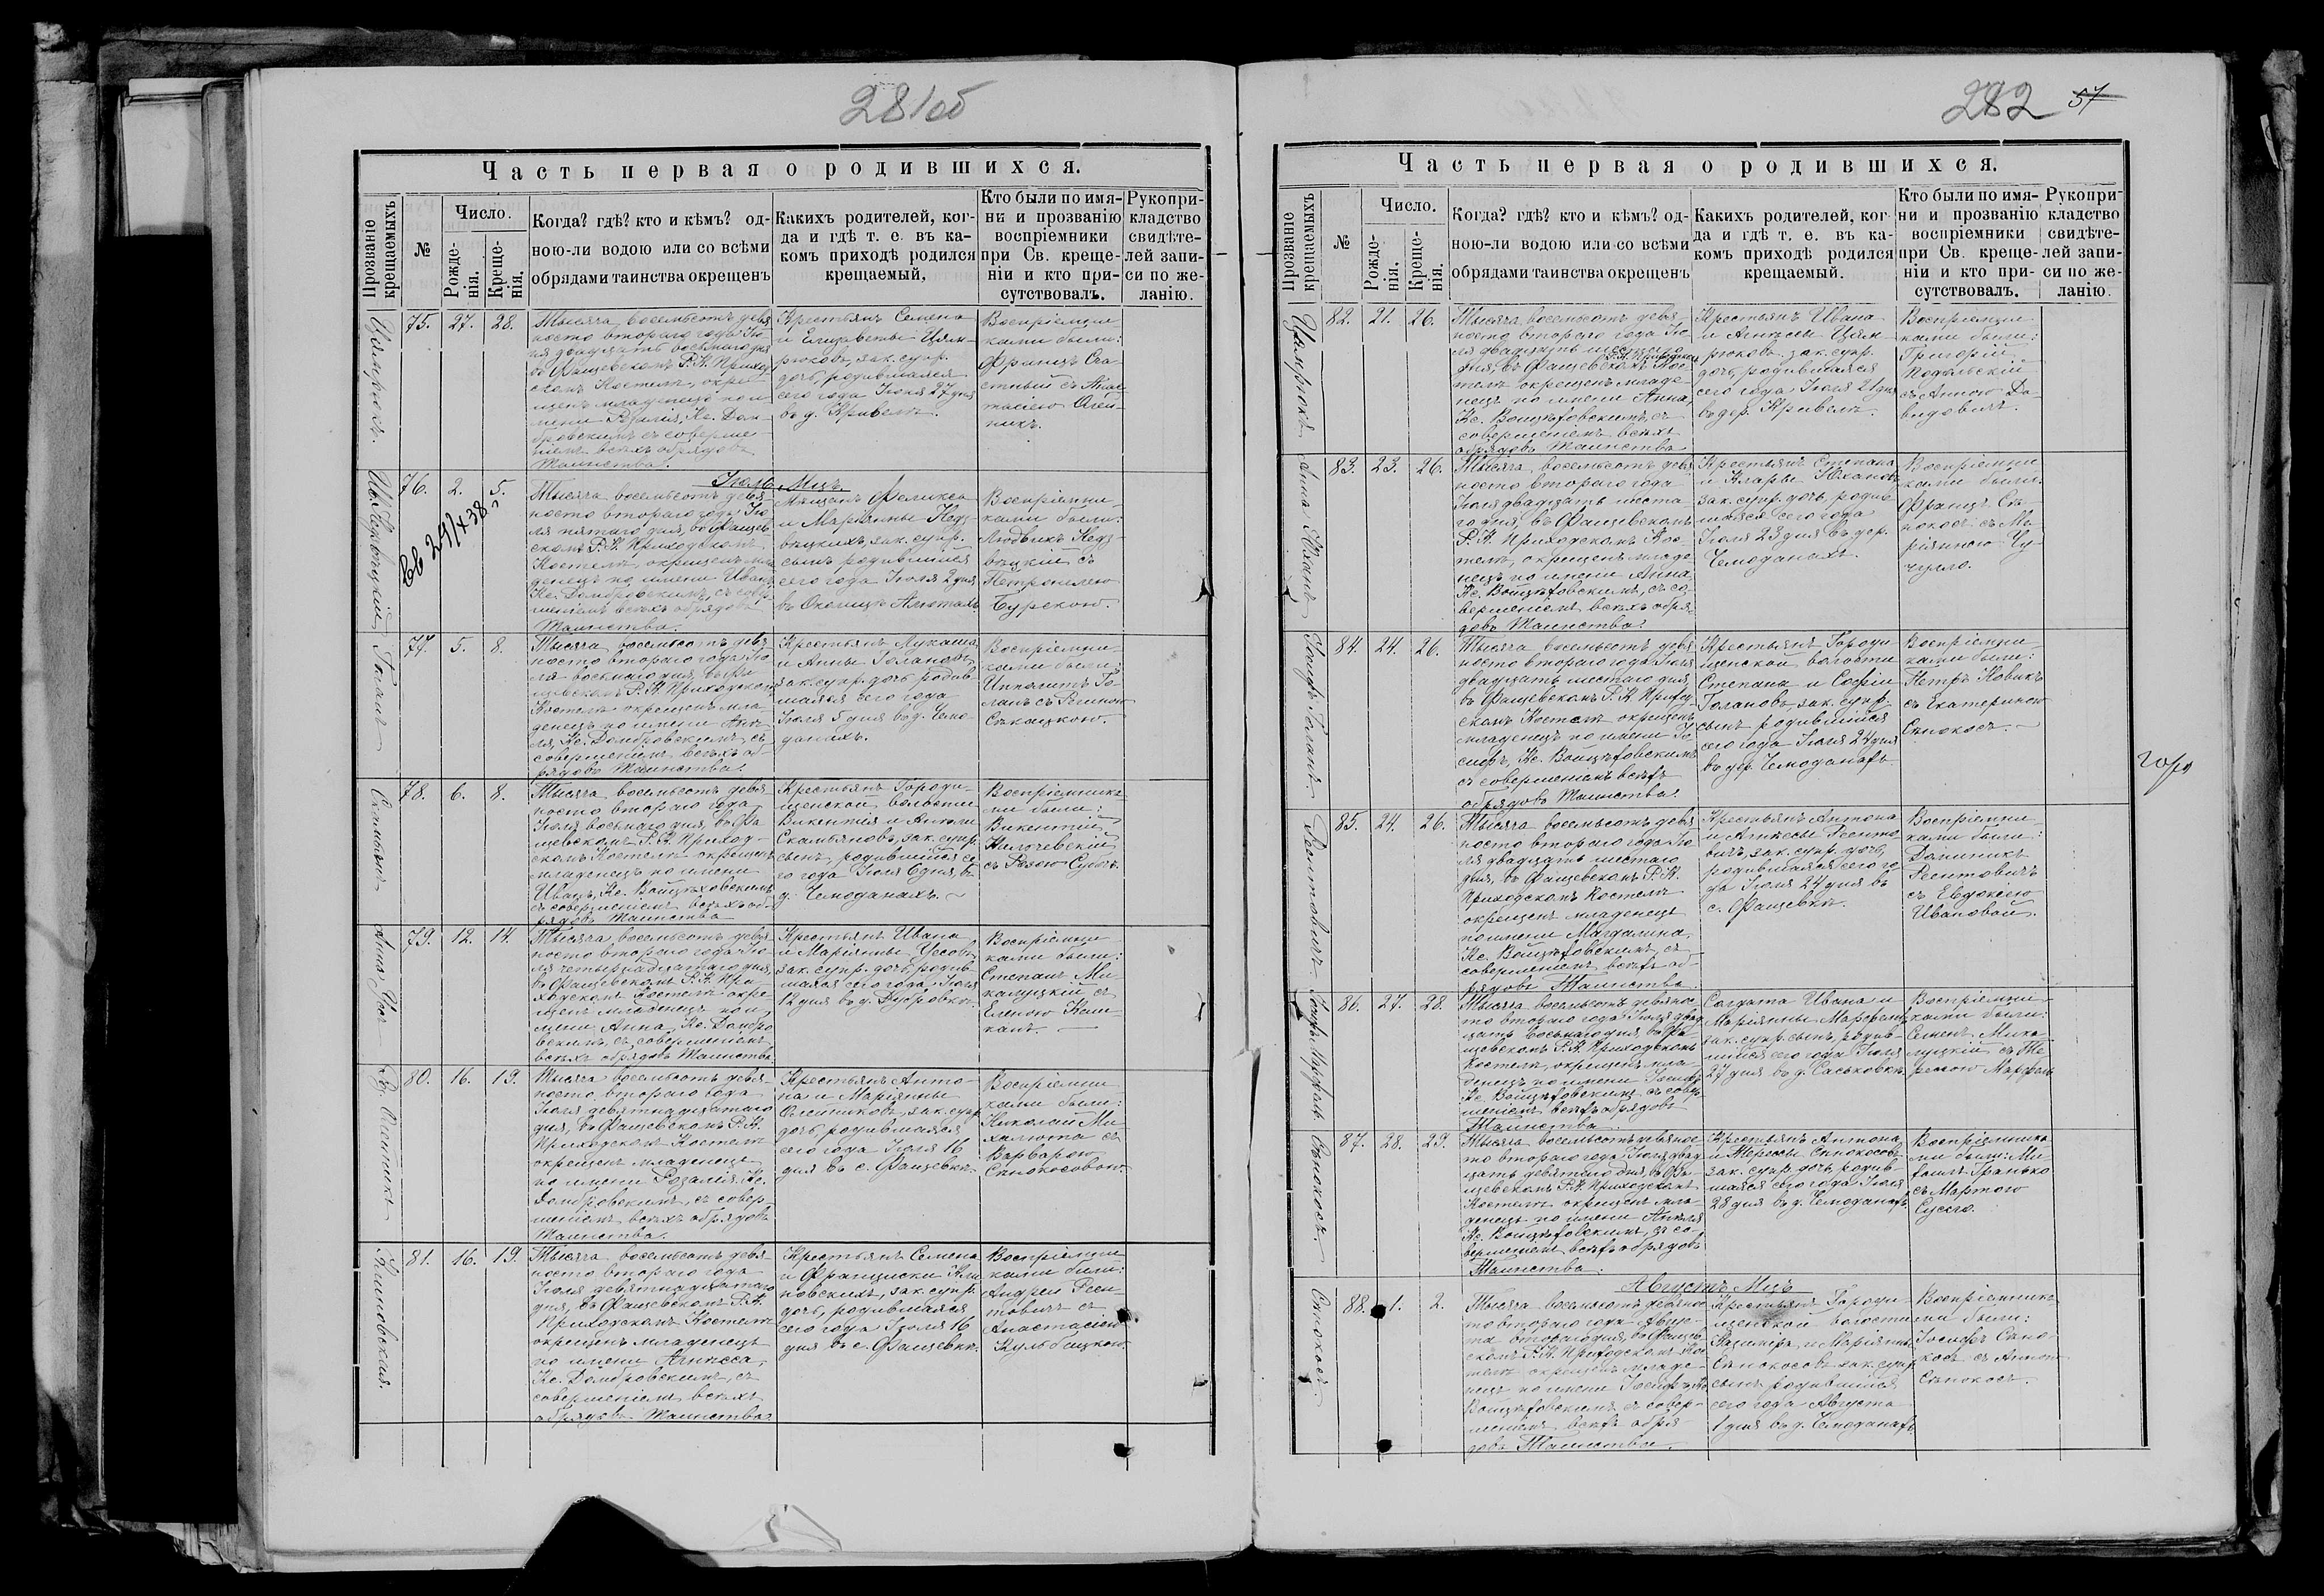 281об
Часть первая о родившихся.
Прозваніе крещаемыхъ
№
Число.
Рожде-
нія.
Креще-
нія.
Когда? гдѣ? кто и кѣмъ? од-
ною-ли водою или со всѣми
обрядами таинства окрещенъ
Какихъ родителей, ког-
да и гдѣ т. е. въ ка-
комъ приходѣ родился
крещаемый.
Кто были по имя-
ни и прозванію
воспріемники
при Св. креще-
ніи и кто при-
сутствовалъ.
Рукопри-
кладство
свидѣте-
лей запи-
си по же-
ланію.
75. 27. 28.
Тысяча восемьсотъ девя
носто втораго года Ію
ня двадцать восьмаго дня
въ Фащевскомъ Р. К. Приход
скомъ Костелѣ, окре
щенъ младенецъ по и
мени Розалія, Кс. Дом
бровскимъ съ соверше
ніемъ всѣхъ обрядовъ
Таинства.
Крестьянъ Семена
и Елизаветы Цям-
рюковъ, зак. супр.
дочь, родившаяся
сего года Іюня 27 дня
въ д. Кривелѣ.
Воспріемни
ками были:
Францъ Сча
стный съ Анас
тасіею Олей
никъ.
Іюль Мцъ.
76. 2. 5.
Тысяча восемьсотъ девя
носто втораго года Ію
ля пятаго дня, въ Фащев
скомъ Р. К. Приходскомъ
Костелѣ, окрещенъ мла
денецъ по имени Иванъ
Кс. Домбровскимъ, съ совер
шеніемъ всѣхъ обрядовъ
Таинства.
Мѣщанъ Феликса
и Маріянны Недз
вѣцкихъ, зак. супр.
сынъ родившійся
сего года Іюля 2 дня
въ Околицѣ
Воспріемни
ками были:
Людвикъ Недз
вѣцкій съ
Петронелею
Бурскою.
77. 5. 8.
Тысяча восемьсотъ девя
носто втораго года Ію
ля восьмаго дня, въ Фа
щевскомъ Р. К. Приходскомъ
Костелѣ окрещенъ мла
денецъ по имени Анѣ
ля, Кс. Домбровскимъ, съ
совершеніемъ всѣхъ об
рядовъ Таинства.
Крестьянъ Лукаша
и Анны Голановъ,
зак. супр. дочь родив
шаяся сего года
Іюля 5 дня въ д. Чемо
данахъ.
Воспріемни
ками были:
Ипполитъ Го
ланъ съ Региною
Сѣкацкою.
78. 6. 8.
Тысяча восемьсотъ девя
носто втораго года
Іюля восьмаго дня, въ Фа
щевскомъ Р. К. Приход-
скомъ Костелѣ окрещенъ
младенецъ по имени
Иванъ, Кс. Войцѣховскимъ
съ совершеніемъ всѣхъ об-
рядовъ Таинства
Крестьянъ Городи-
щенской волости
Викентія и Анѣли
Скамьяновъ, зак. супр.
сынъ, родившійся се
го года Іюля 6 дня, въ
д. Чемоданахъ.
Воспріемника
ми были:
Викентій
съ Розою Суботъ.
79. 12. 14.
Тысяча восемьсотъ девя
носто втораго года Ію
ля четырнадцатаго дня,
въ Фащевскомъ Р. К. При
ходскомъ Костелѣ окре
щенъ младенецъ по и
мени Анна, Кс. Домбро
вскимъ, съ совершеніемъ
всѣхъ обрядовъ Таинства
Крестьянъ Ивана
и Маріянны Усовъ,
зак. супр. дочь, родив
шаяся сего года Іюля
12 дня въ д. Дубровкѣ.
Воспріемни
ками были:
Степанъ Ми
калуцкій съ
Еленою
80. 16. 19.
Тысяча восемьсотъ девя-
носто втораго года
Іюля девятнадцатаго
дня, въ Фащевскомъ Р. К.
Приходскомъ Костелѣ
окрещенъ младенецъ
по имени Розалія, Кс.
Домбровскимъ, съ совер-
шеніемъ всѣхъ обрядовъ
Таинства.
Крестьянъ Анто-
на и Маріянны
Олейниковъ, зак. супр.
дочь родившаяся
сего года Іюля 16
дня въ с. Фащевкѣ.
Воспріемни
ками были:
Николай Ми
халюта съ
Варварою
Сѣнокосовою.
Клиновская.
81. 16. 19.
Тысяча восемьсотъ девя
носто втораго года
Іюля девятнадцатаго
дня, въ Фащевскомъ Р. К.
Приходскомъ Костелѣ
окрещенъ младенецъ
по имени Агнесса,
Кс. Домбровскимъ, съ
совершеніемъ всѣхъ
обрядовъ Таинства
Крестьянъ Семена
и Франциски Кли
новскихъ, зак. супр.
дочь, родившаяся
сего года Іюля 16
дня въ с. Фащевкѣ.
Воспріемни
ками были:
Андрей Реен
товичъ съ
Анастасіею
Кульбицкою.
282 57
Часть первая о родившихся.
Прозваніе крещаемыхъ
№
Число.
Рожде-
нія.
Креще-
нія.
Когда? гдѣ? кто и кѣмъ? од-
ною-ли водою или со всѣми
обрядами таинства окрещенъ
Какихъ родителей, ког-
да и гдѣ т. е. въ ка-
комъ приходѣ родился
крещаемый.
Кто были по имя-
ни и прозванію
воспріемники
при Св. креще-
ніи и кто при-
сутствовалъ.
Рукопри-
кладство
свидѣте-
лей запи-
си по же-
ланію.
Цямрюкъ
82. 21. 26.
Тысяча восемьсотъ девя-
носто втораго года Ію
ля двадцать шестаго
дня, въ Фащевскомъ Р. К. Приходскомъ Кос
телѣ окрещенъ младе-
нецъ по имени Анна,
Кс. Войцѣховскимъ, съ
совершеніемъ всѣхъ
обрядовъ Таинства
Крестьянъ Ивана
и Агнесы Цям-
рюковъ зак. супр.
дочь, родившаяся
сего года Іюля 21 дня
въ дер. Кривелѣ.
Воспріемни
ками были:
Григорій
Подѣльскій
съ Анною Да-
видовичъ.
Анна Юханъ
83. 23. 26.
Тысяча восемьсотъ девя
носто втораго года
Іюля двадцать шеста-
го дня, въ Фащевскомъ
Р. К. Приходскомъ Кос-
телѣ, окрещенъ младе-
нецъ по имени Анна,
Кс. Войцѣховскимъ, съ со
вершеніемъ всѣхъ обря
довъ Таинства.
Крестьянъ Степана
и Клары Юхановъ
зак. супр. дочь, родив
шаяся сего года
Іюля 23 дня въ дер.
Чемоданахъ.
Воспріемни
ками были:
Францъ Сѣ-
нокосъ съ Ма-
ріянною Чу-
чулло.
Іосифъ Голанъ
84. 24. 26.
Тысяча восемьсотъ девя
носто втораго года Іюля
двадцать шестаго дня,
въ Фащевскомъ Р. К. Приход
скомъ Костелѣ окрещенъ
младенецъ по имени Іо
сифъ, Кс. Войцѣховскимъ
съ совершеніемъ всѣхъ
обрядовъ Таинства.
Крестьянъ Городи
щенской волости
Степана и Софіи
Голановъ, зак. супр.
сынъ родившійся
сего года Іюля 24 дня
въ дер. Чемоданахъ
Воспріемни
ками были:
Петръ Новикъ
съ Екатериною
Сѣнокосъ.
Реентовичъ
85. 24. 26.
Тысяча восемьсотъ девя
носто втораго года Ію
ля двадцать шестаго
дня, въ Фащевскомъ Р. К.
Приходскомъ Костелѣ
окрещенъ младенецъ
по имени Магдалина,
Кс. Войцѣховскимъ, съ
совершеніемъ всѣхъ об-
рядовъ Таинства.
Крестьянъ Антона
и Агнесы Реенто
вичъ, зак. супр. дочь,
родившаяся сего го-
да Іюля 24 дня въ
с. Фащевкѣ.
Воспріемни
ками были:
Доминикъ
Реентовичъ
съ Евдокіею
Ивановой.
86. 27. 28.
Тысяча восемьсотъ девянос
то втораго года Іюля двад
цать восьмаго дня, въ Фа
щевскомъ Р. К. Приходскомъ
Костелѣ, окрещенъ мла
денецъ по имени Іосифъ
Кс. Войцѣховскимъ съ совер
шеніемъ всѣхъ обрядовъ
Таинства.
Солдата Ивана и
Маріянны
зак. супр. сынъ, родив-
шійся сего года Іюля
27 дня въ д. Саськовкѣ
Воспріемни-
ками были:
Семенъ Мика
луцкій съ Те
резою
Сѣнокосъ.
87. 28. 29.
Тысяча восемьсотъ девянос
то втораго года Іюля двад
цать девятаго дня, въ Фа-
щевскомъ Р. К. Приходскомъ
Костелѣ окрещенъ мла
денецъ по имени Анѣля
Кс. Войцѣховскимъ, съ со-
вершеніемъ всѣхъ обрядовъ
Таинства.
Крестьянъ Антона
и Терезы Сѣнокосовъ
зак. супр. дочь, родив-
шаяся сего года Іюля
28 дня въ д. Чемоданахъ
Воспріемника
ми были: Ми-
хаилъ Гранько
съ Мартою
Августъ Мцъ
Сѣнокосъ
88. 1. 2.
Тысяча восемьсотъ девянос
то втораго года Авгус-
та втораго дня, въ Фащев
скомъ Р. К. Приходскомъ Кос
телѣ окрещенъ младе-
нецъ по имени Іосифъ, Кс.
Войцѣховскимъ съ совер-
шеніемъ всѣхъ обря
довъ Таинства.
Крестьянъ Городи-
щенской волости
Казиміра и Маріянны
Сѣнокосовъ зак. супр.
сынъ родившійся
сего года Августа
1 дня въ д. Чемоданахъ
Воспріемника
ми были:
Іосифъ Сѣно
косъ съ Анною
Сѣнокосъ.